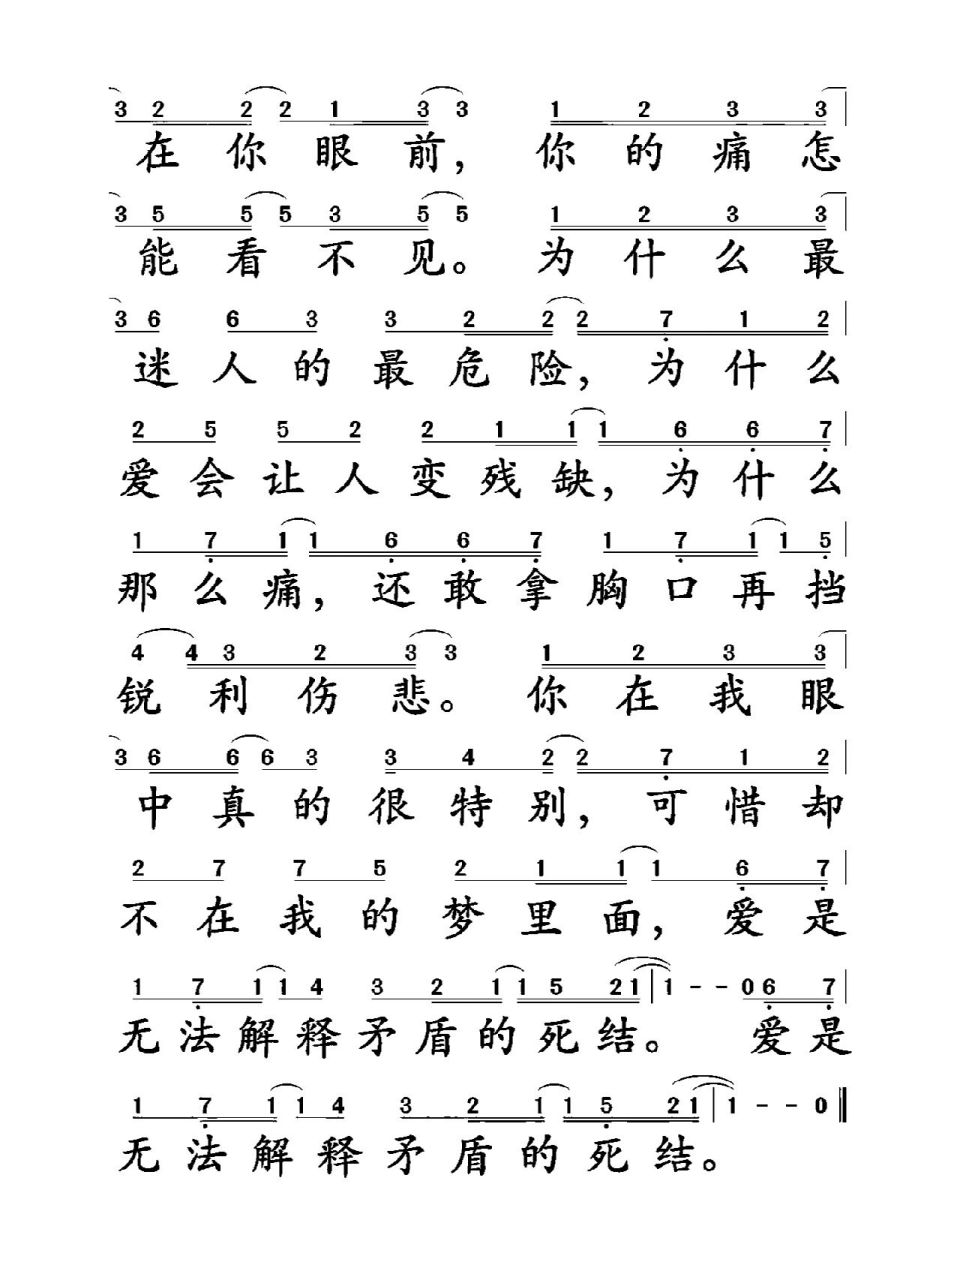 3 2 2 2 1 3 3 1 2 3 3
在你眼前，你的痛怎
3 5 5 5 3 5 5 1 2 3 3
能看不见。为什么最
3 6 6 3 3 2 2 2 7 1 2
迷人的最危险，为什么
2 5 5 2 2 1 1 1 6 6 7
爱会让人变残缺，为什么
1 7 1 1 6 6 7 1 7 1 1 5
那么痛，还敢拿胸口再挡
4 4 3 2 3 3 1 2 3 3
锐利伤悲。你在我眼
3 6 6 6 3 3 4 2 2 7 1 2
中真的很特别，可惜却
2 7 7 5 2 1 1 1 6 7
不在我的梦里面，爱是
1 7 1 1 4 3 2 1 1 5 2 1 | 1 - - 0 6 7
无法解释矛盾的死结。爱是
1 7 1 1 4 3 2 1 1 5 2 1 | 1 - - 0
无法解释矛盾的死结。